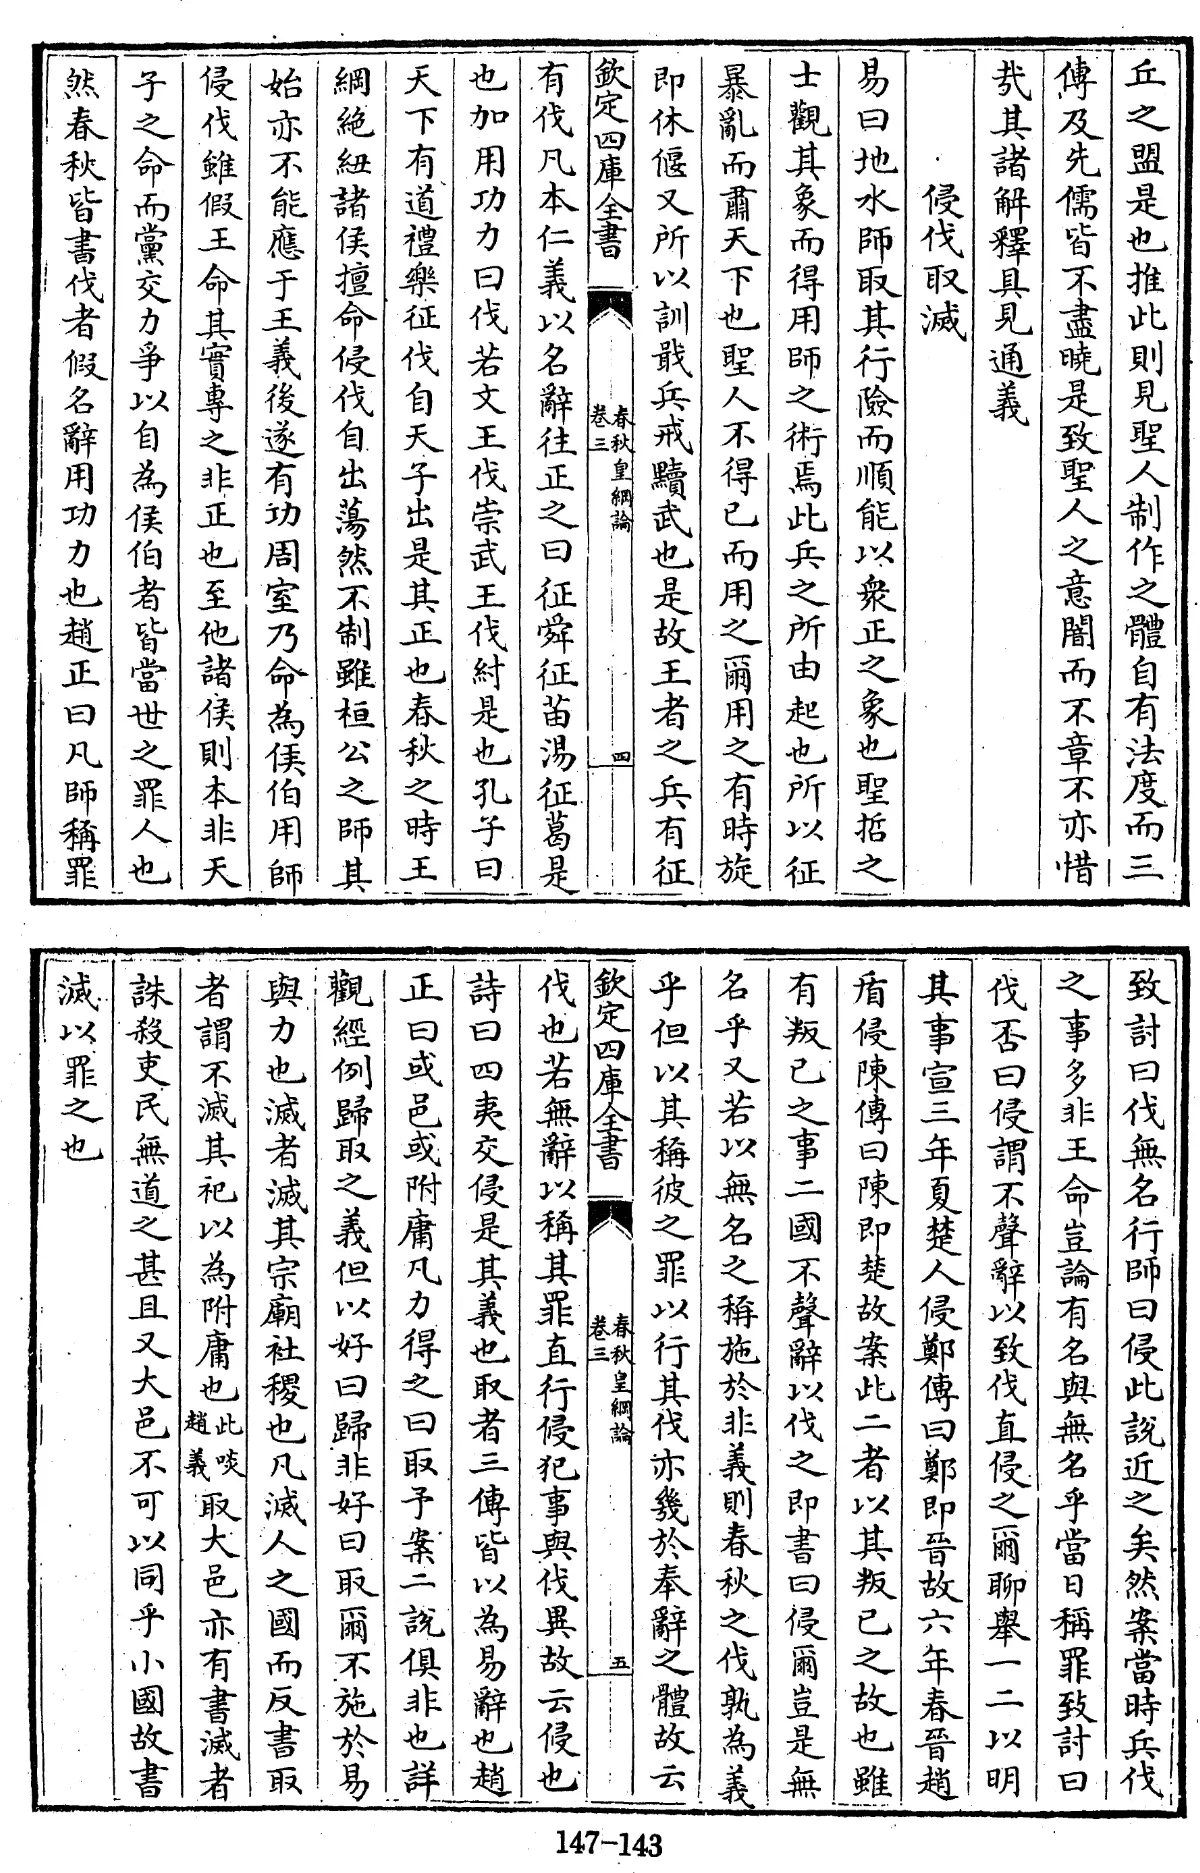 丘之盟是也推此則見聖人制作之體自有法度而三
傳及先儒皆不盡曉是致聖人之意闇而不章不亦惜
㢤其諸解釋具見通義
侵伐取滅
易曰地水師取其行險而順能以衆正之象也聖哲之
士觀其象而得用師之術焉此兵之所由起也所以征
暴亂而肅天下也聖人不得已而用之爾用之有時旋
即休偃又所以訓戢兵戒黷武也是故王者之兵有征
欽定四庫全書
春秋皇綱論
卷三
四
有伐凡本仁義以名辭往正之曰征舜征苗湯征葛是
也加用功力曰伐若文王伐崇武王伐紂是也孔子曰
天下有道禮樂征伐自天子出是其正也春秋之時王
綱絶紐諸侯擅命侵伐自出蕩然不制雖桓公之師其
始亦不能應于王義後遂有功周室乃命為侯伯用師
侵伐雖假王命其實專之非正也至他諸侯則本非天
子之命而黨交力爭以自為侯伯者皆當世之罪人也
然春秋皆書伐者假名辭用功力也趙正曰凡師稱罪
致討曰伐無名行師曰侵此說近之矣然案當時兵伐
之事多非王命豈論有名與無名乎當日稱罪致討曰
伐否曰侵謂不聲辭以致伐直侵之爾聊舉一二以明
其事宣三年夏楚人侵鄭傳曰鄭即晉故六年春晉趙
盾侵陳傳曰陳即楚故案此二者以其叛已之故也雖
有叛已之事二國不聲辭以伐之即書曰侵爾豈是無
名乎又若以無名之稱施於非義則春秋之伐孰為義
乎但以其稱彼之罪以行其伐亦幾於奉辭之體故云
欽定四庫全書
春秋皇綱論
卷三
五
伐也若無辭以稱其罪直行侵犯事與伐異故云侵也
詩曰四夷交侵是其義也取者三傳皆以為易辭也趙
正曰或邑或附庸凡力得之曰取予案二說俱非也詳
觀經例歸取之義但以好曰歸非好曰取爾不施於易
與力也滅者滅其宗廟社稷也凡滅人之國而反書取
者謂不滅其祀以為附庸也此啖趙義取大邑亦有書滅者
誅殺吏民無道之甚且又大邑不可以同乎小國故書
滅以罪之也
147-143